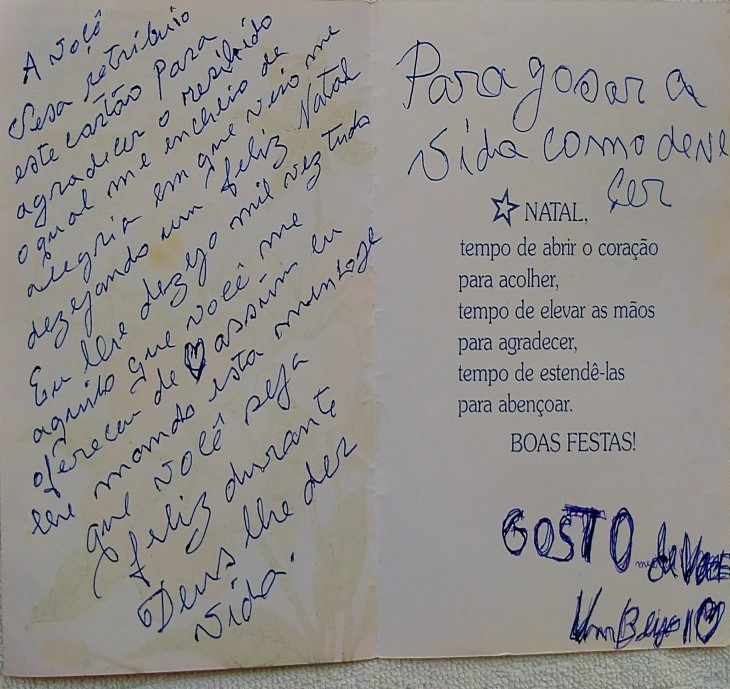 A você
Sesa retribuio
este cartão Para
agradecer o resibido
o qual me encheio de
alegria em que veio me
dezejando um feliz Natal
Eu lhe dezejo mil vez tudo
aquilo que você me
ofereceu de ♡ assim eu
lhe mando esta mensage
que você seja
feliz durante
Deus lhe der
vida.
Para gosar a
vida como deve
ser
NATAL,
tempo de abrir o coração
para acolher,
tempo de elevar as mãos
para agradecer,
tempo de estendê-las
para abençoar.
BOAS FESTAS!
GOSTO de Voce
Um Beijo